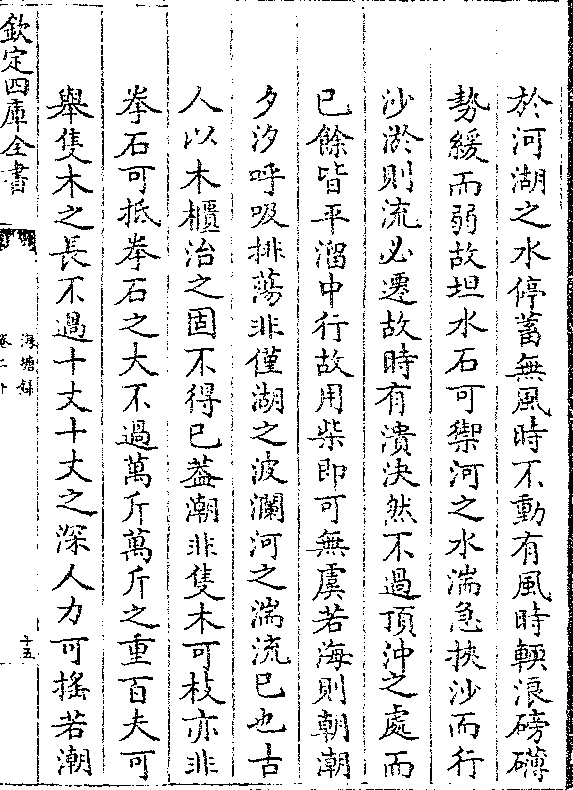 於河湖之水停蓄無風時不動有風時輭浪磅礴
勢緩而弱故坦水石可禦河之水湍急挾沙而行
沙淤則流必遷故時有潰决然不過頂沖之處而
已餘皆平溜中行故用柴即可無虞若海則朝潮
夕汐呼吸排蕩非僅湖之波瀾河之湍流已也古
人以木櫃治之固不得已葢潮非隻木可枝亦非
拳石可抵拳石之大不過萬斤萬斤之重百夫可
舉隻木之長不過十丈十丈之深人力可搖若潮
欽定四庫全書
海塘録
十五